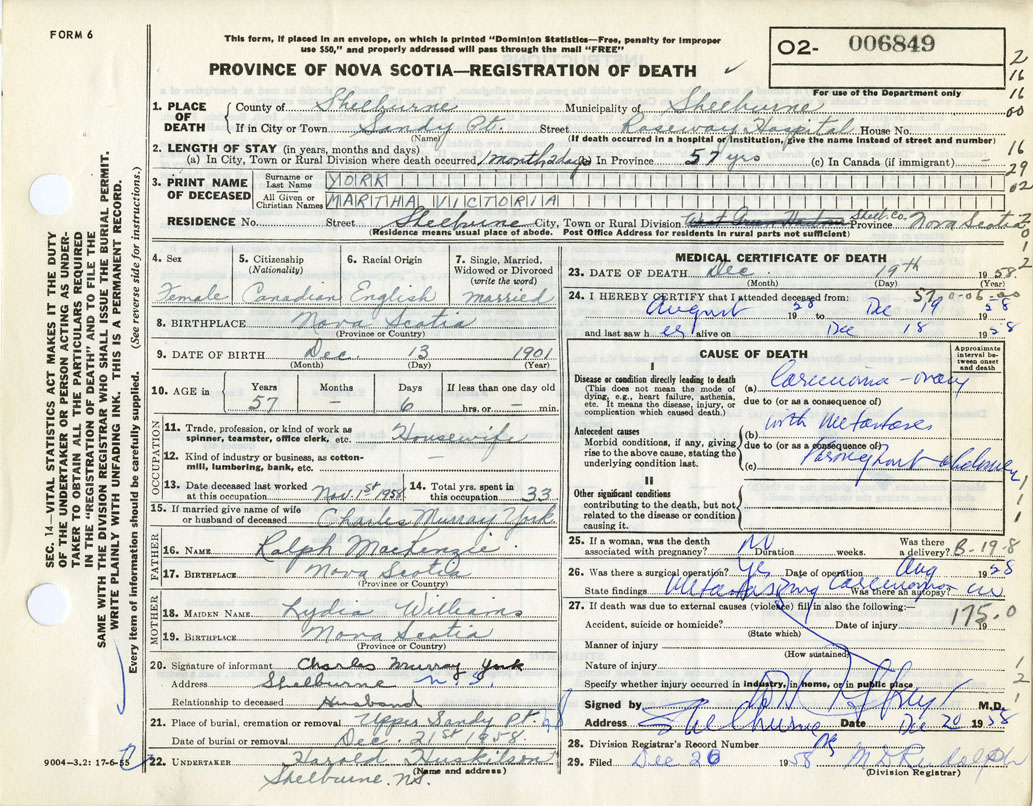 FORM 6
This form, if placed in an envelope, on which is printed "Dominion Statistics—Free, penalty for improper
use $50," and properly addressed will pass through the mail "FREE"
PROVINCE OF NOVA SCOTIA—REGISTRATION OF DEATH
02- 006849
For use of the Department only
1. PLACE OF DEATH County of Shelburne Municipality of Shelburne
If in City or Town Sandy Pt. Street Roseway Hospital House No.
(Name) (If death occurred in a hospital or institution, give the name instead of street and number)
2. LENGTH OF STAY (in years, months and days)
(a) In City, Town or Rural Division where death occurred 1 month 2 days In Province 57 yrs (c) In Canada (if immigrant) —
3. PRINT NAME OF DECEASED Surname or Last Name YORK
All Given or Christian Names MARTHA VICTORIA
RESIDENCE No. Street Shelburne City, Town or Rural Division West Green Harbour Shelb. Co. Province Nova Scotia
(Residence means usual place of abode. Post Office Address for residents in rural parts not sufficient)
4. Sex 5. Citizenship (Nationality) 6. Racial Origin 7. Single, Married, Widowed or Divorced (write the word)
Female Canadian English married
8. BIRTHPLACE Nova Scotia
(Province or Country)
9. DATE OF BIRTH Dec. 13 1901
(Month) (Day) (Year)
10. AGE in Years Months Days If less than one day old
57 — 6 hrs. or — min.
OCCUPATION
11. Trade, profession, or kind of work as spinner, teamster, office clerk, etc. Housewife
12. Kind of industry or business, as cotton-mill, lumbering, bank, etc. —
13. Date deceased last worked at this occupation Nov. 1st 1958 14. Total yrs. spent in this occupation 33
15. If married give name of wife or husband of deceased Charles Murray York
FATHER
16. NAME Ralph MacKenzie
17. BIRTHPLACE Nova Scotia
(Province or Country)
MOTHER
18. MAIDEN NAME Lydia Williams
19. BIRTHPLACE Nova Scotia
(Province or Country)
20. Signature of informant Charles Murray York
Address Shelburne N.S.
Relationship to deceased Husband
21. Place of burial, cremation or removal Upper Sandy Pt.
Date of burial or removal Dec. 21st 1958.
22. UNDERTAKER Harold Huskilson
(Name and address)
Shelburne, NS.
9004—3.2: 17-6-55
MEDICAL CERTIFICATE OF DEATH
23. DATE OF DEATH Dec 19th 1958.
(Month) (Day) (Year)
57 0-06-00
24. I HEREBY CERTIFY that I attended deceased from:
August 1958 to Dec 19 1958
and last saw h er alive on Dec 18 1958
CAUSE OF DEATH
Approximate interval between onset and death
I
Disease or condition directly leading to death
(This does not mean the mode of dying, e.g., heart failure, asthenia, etc. It means the disease, injury, or complication which caused death.)
(a) Carcinoma - ovary
due to (or as a consequence of)
Antecedent causes
Morbid conditions, if any, giving rise to the above cause, stating the underlying condition last.
(b) with Metastases
due to (or as a consequence of)
(c) throughout abdomen
II
Other significant conditions
contributing to the death, but not related to the disease or condition causing it.
25. If a woman, was the death associated with pregnancy? No Duration weeks. Was there a delivery? B-19-8
26. Was there a surgical operation? Yes Date of operation Aug 1958
State findings Metastasizing Carcinoma Was there an autopsy?
27. If death was due to external causes (violence) fill in also the following:—
175.0
Accident, suicide or homicide? Date of injury 19
(State which)
Manner of injury
(How sustained)
Nature of injury
Specify whether injury occurred in industry, in home, or in public place
Signed by M.D.
Address Shelburne Date Dec 20 1958
28. Division Registrar's Record Number
29. Filed Dec 26 1958 M D Rudolph
(Division Registrar)
SEC. 14—VITAL STATISTICS ACT MAKES IT THE DUTY
OF THE UNDERTAKER OR PERSON ACTING AS UNDER-
TAKER TO OBTAIN ALL THE PARTICULARS REQUIRED
IN THE "REGISTRATION OF DEATH" AND TO FILE THE
SAME WITH THE DIVISION REGISTRAR WHO SHALL ISSUE THE BURIAL PERMIT.
WRITE PLAINLY WITH UNFADING INK. THIS IS A PERMANENT RECORD.
Every item of information should be carefully supplied. (See reverse side for instructions.)
2
16
16
00
16
29
02
2
0
1
2
1
1
1
1
2
1